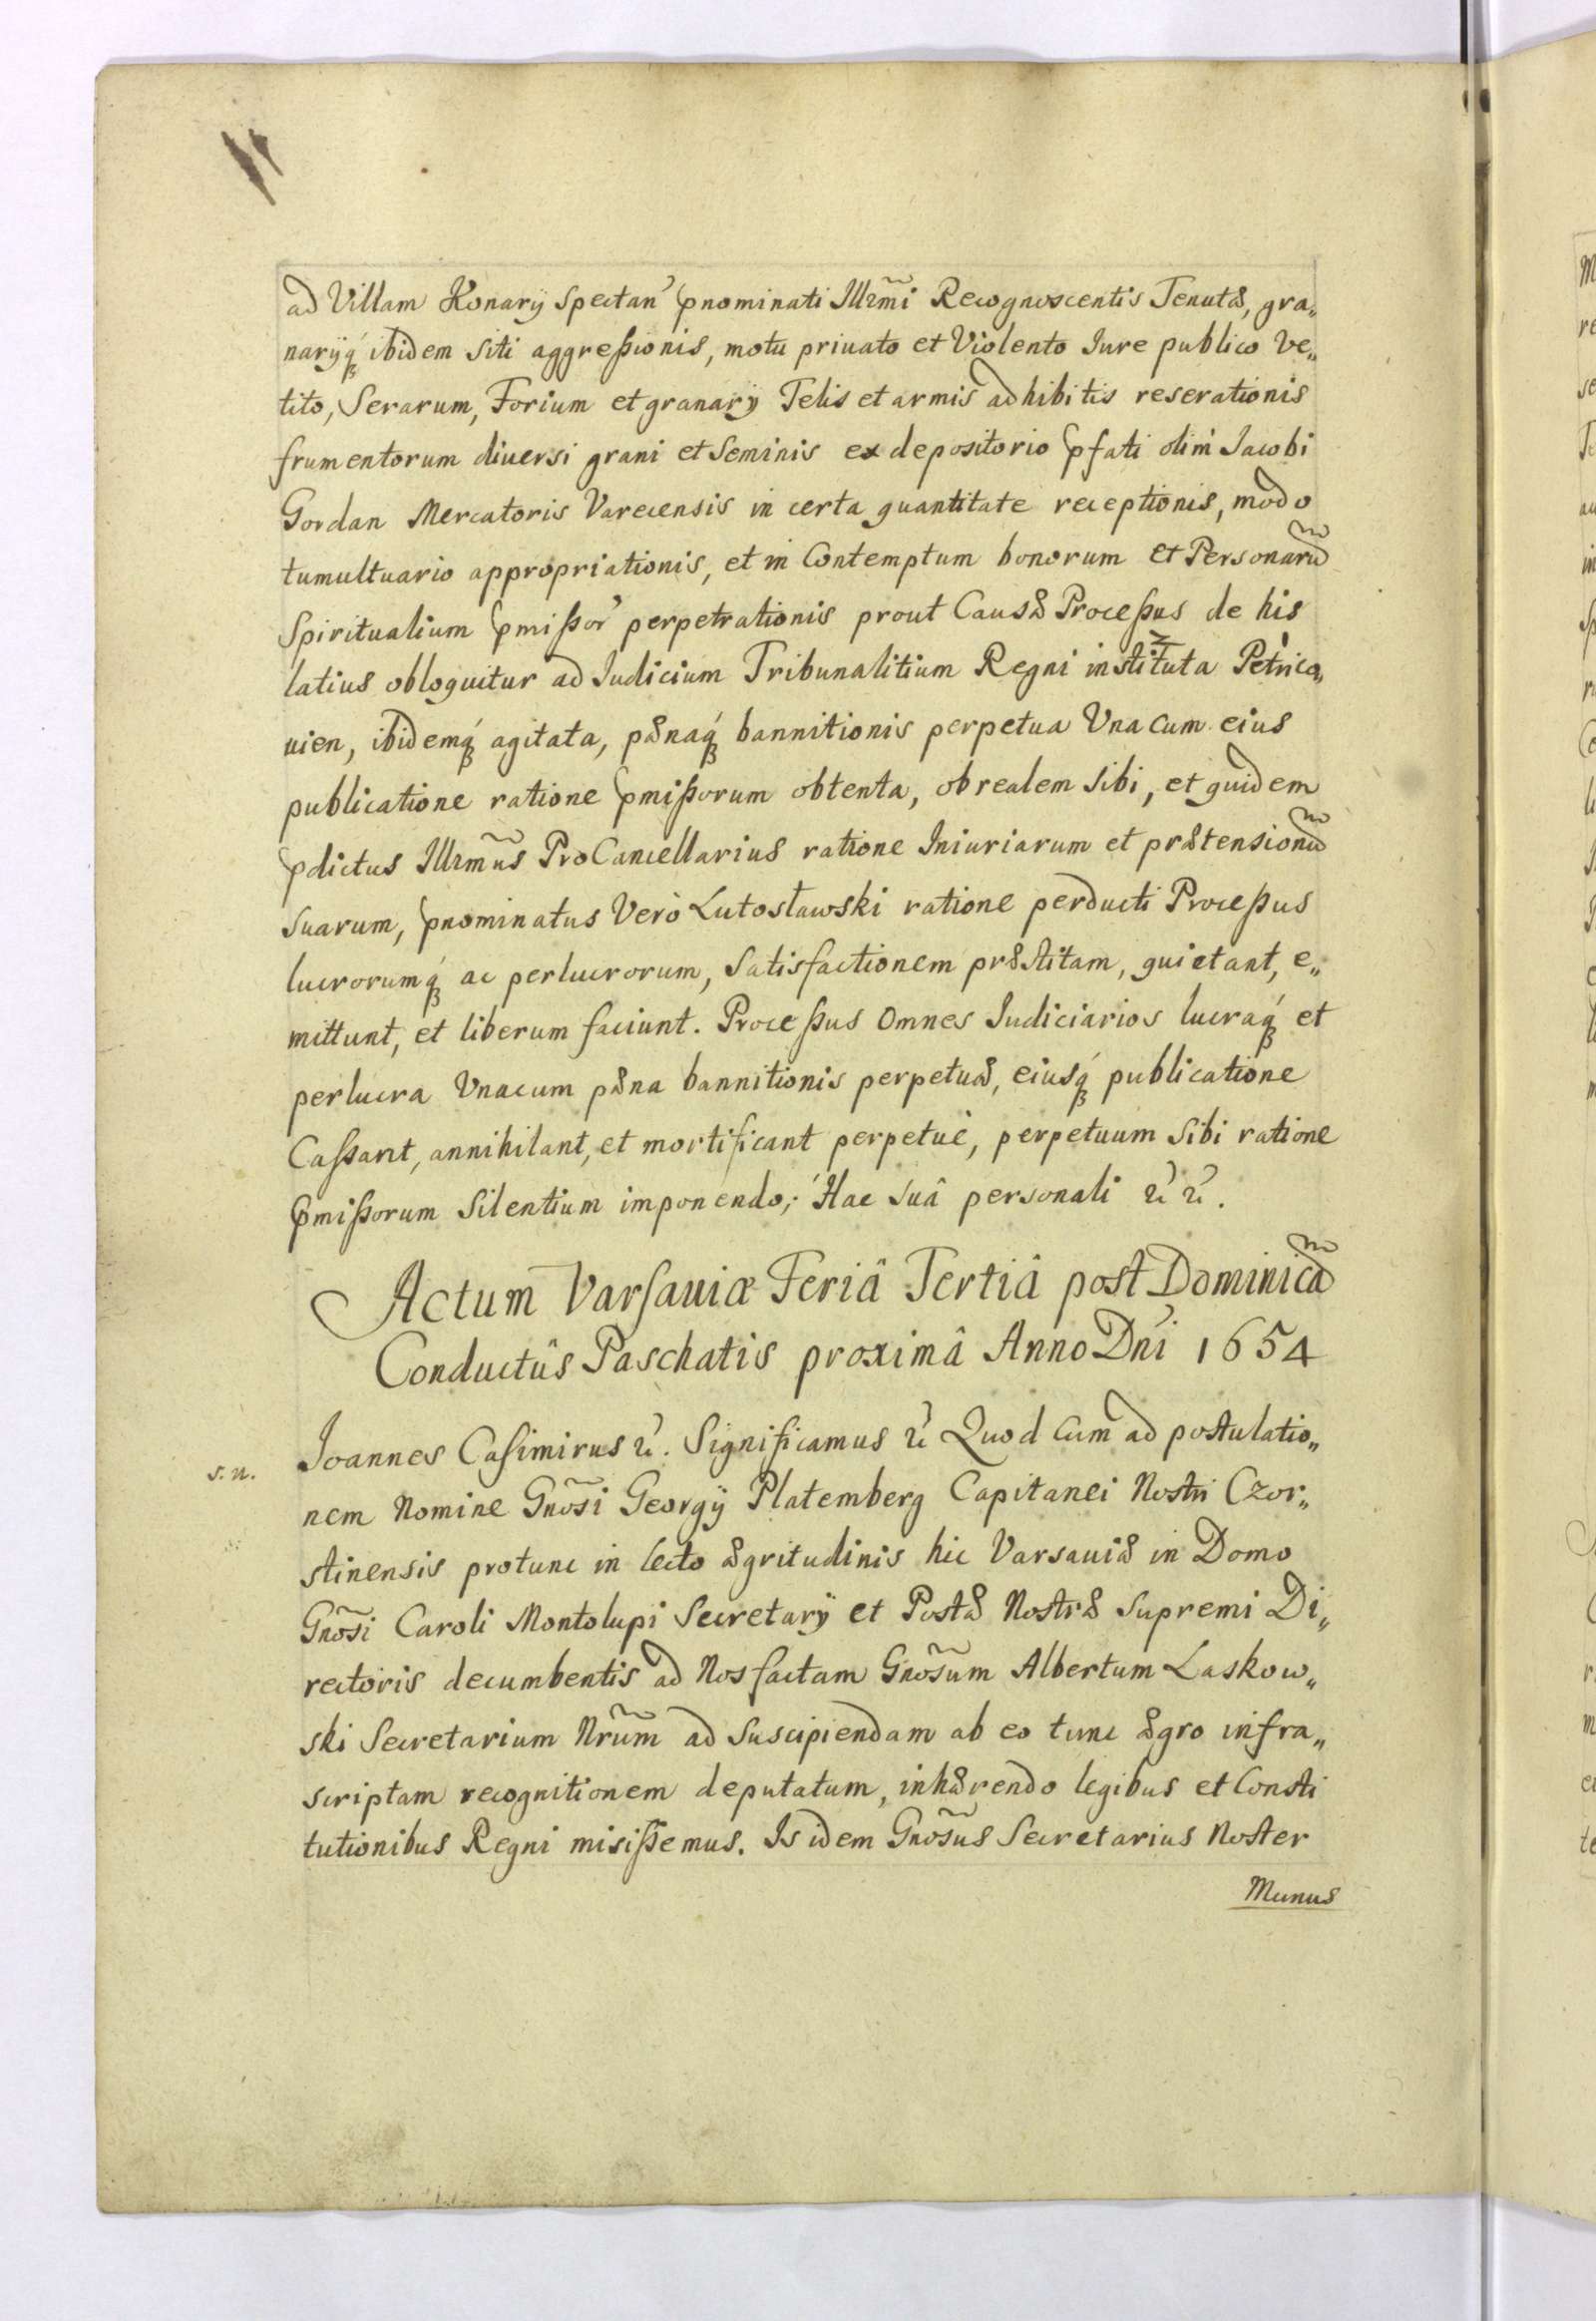 ad Villam Konary Spectan̉ pnominati Illr̃mi Recognoscentis Tenutæ, gra„
narÿq́ ibidem siti aggreßionis, motu priuato et Violento Iure publico ve„
tito, Serarum, Forium et granarÿ Telis et armis adhibitis reserationis
frumentorum diuersi grani et Seminis ex depositorio pfati olim Iacobi
Gordan Mercatoris Varecensis in certa quantitate receptionis, modo
tumultuario appropriationis, et in Contemptum bonorum et Personarũ
Spiritualium pmißor̉ perpetrationis prout Causæ Proceßus de his
latius obloquitur ad Iudicium Tribunalitium Regni instituta Petrico„
uien, ibidemq́ agitata, pænaq́ bannitionis perpetua Vna cum eius
publicatione ratione pmißorum obtenta, ob realem sibi, et quidem
pdictus Illr̃mus ProCancellarius ratione Iniuriarum et prætensionũ
suarum, pnominatus Verò Lutosławski ratione perducti Proceßus
lucrorumq́ ac perlucrorum, Satisfactionem præstitam, quietant, e„
mittunt, et liberum faciunt. Proceßus Omnes Iudiciarios lucraq́ et
perlucra Vnacum pæna bannitionis perpetuæ, eiusq́ publicatione
Caßant, annihilant, et mortificant perpetuè, perpetuum sibi ratione
pmißorum Silentium imponendo; Hac suâ personali &̉ &̉.
Actum Varsauiæ Feriâ Tertiâ post Dominicã
Conductûs Paschatis proximâ Anno Dn̉i 1654
s. n. Ioannes Casimirus &̉. Significamus &̉ Quod Cum ad postulatio„
nem Nomine Gnõsi Georgÿ Platemberg Capitanei Nostri Czor„
stinensis protunc in lecto ægritudinis hic Varsauiæ in Domo
Gnõsi Caroli Montolupi Secretarÿ et Postæ Nostræ Supremi Di„
rectoris decumbentis ad Nos factam Gnõsum Albertum Laskow„
ski Secretarium Nr̃um ad Suscipiendam ab eo tunc ægro infra„
scriptam recognitionem deputatum, inhærendo legibus et Consti
tutionibus Regni misißemus. Is idem Gnõsus Secretarius Noster
Munus